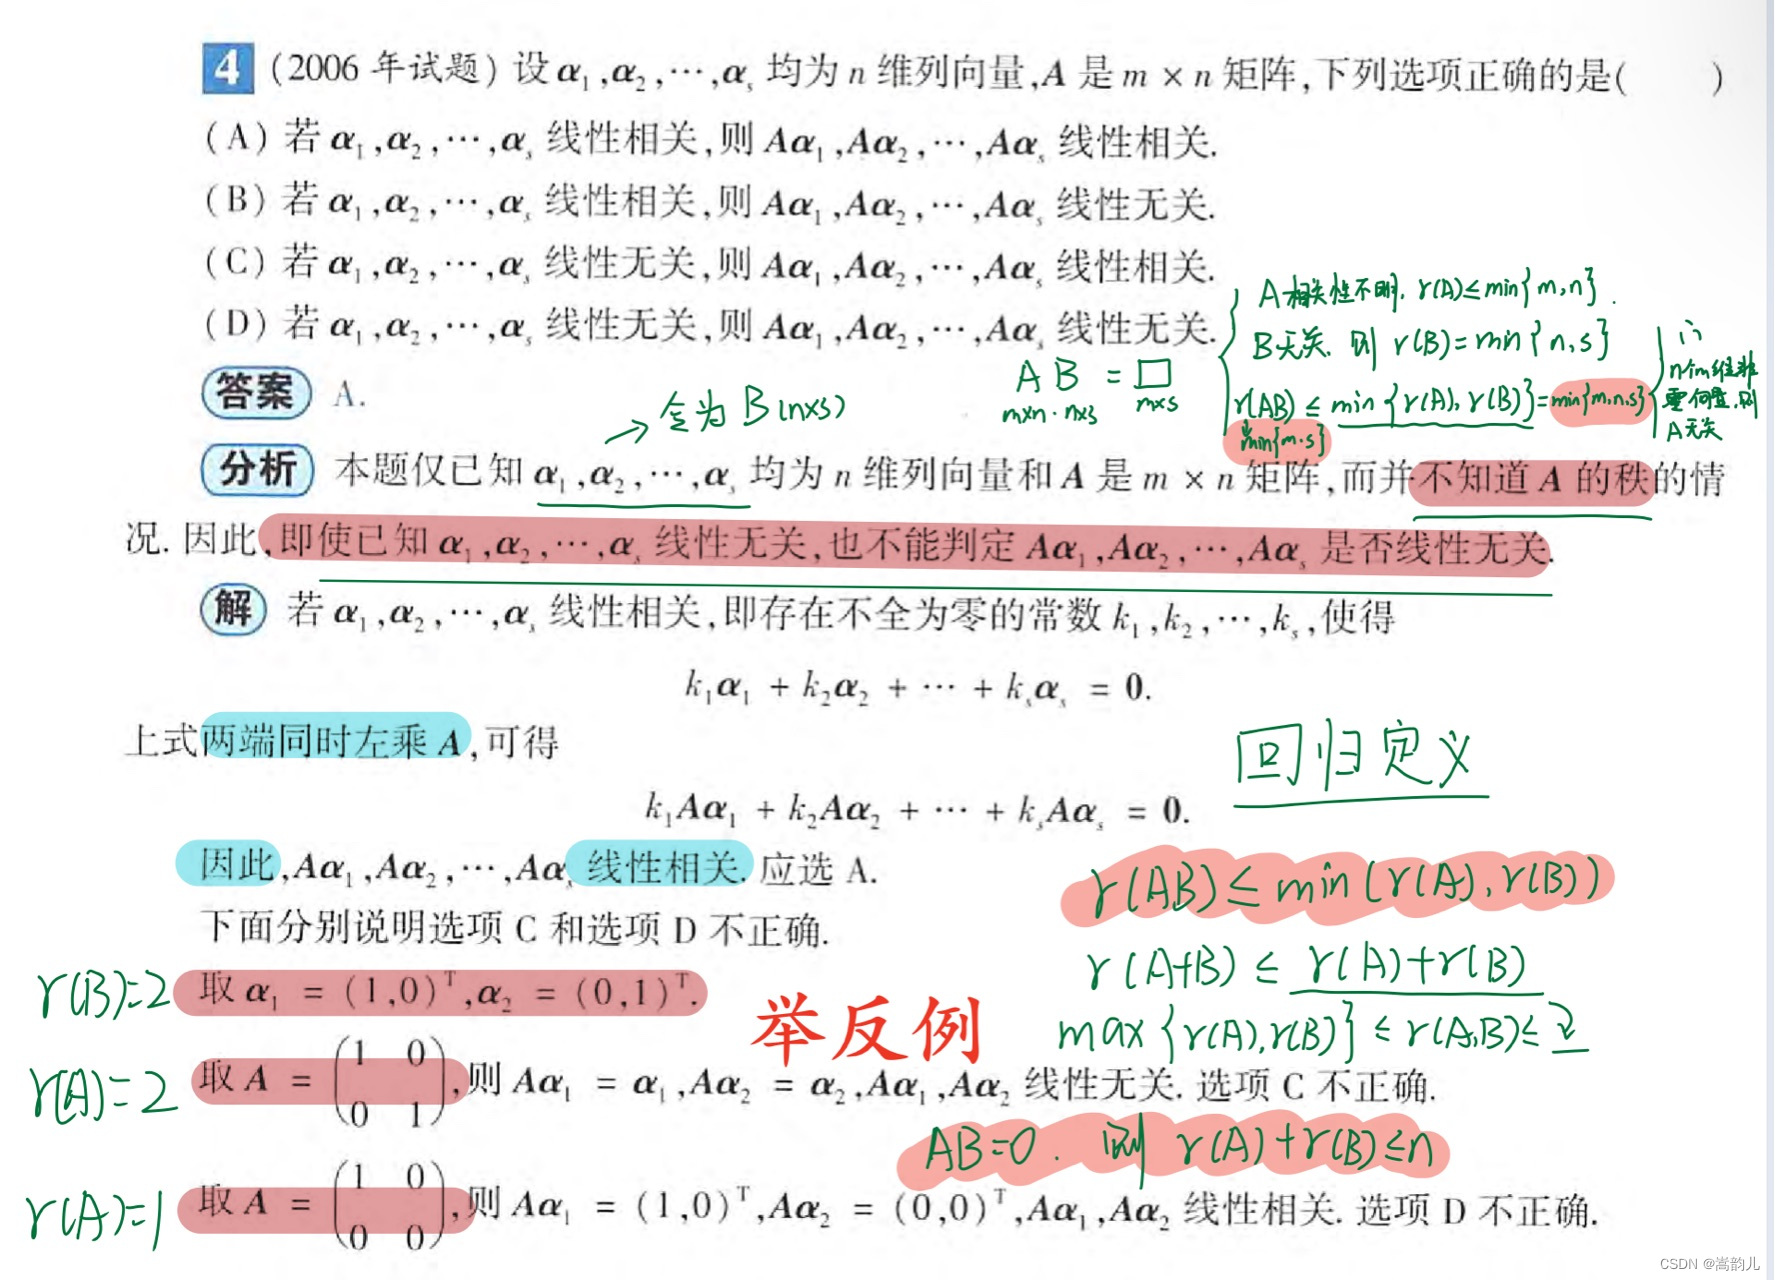 4 (2006 年试题) 设 α₁,α₂,⋯,αₛ 均为 n 维列向量,A 是 m × n 矩阵,下列选项正确的是(  )
(A) 若 α₁,α₂,⋯,αₛ 线性相关,则 Aα₁,Aα₂,⋯,Aαₛ 线性相关.
(B) 若 α₁,α₂,⋯,αₛ 线性相关,则 Aα₁,Aα₂,⋯,Aαₛ 线性无关.
(C) 若 α₁,α₂,⋯,αₛ 线性无关,则 Aα₁,Aα₂,⋯,Aαₛ 线性相关.
(D) 若 α₁,α₂,⋯,αₛ 线性无关,则 Aα₁,Aα₂,⋯,Aαₛ 线性无关.
A相关性不明, r(A)≤min{m,n}.
B无关, 则 r(B)=min{n,s}
r(AB) ≤ min{r(A), r(B)}=min{m,n,s}
min{m·s}
n个m维非
零向量,则
A无关
A B = □
m×n · n×s m×s
答案 A.
→ 令为 B(n×s)
分析 本题仅已知 α₁,α₂,⋯,αₛ 均为 n 维列向量和 A 是 m × n 矩阵,而并不知道 A 的秩的情
况. 因此,即使已知 α₁,α₂,⋯,αₛ 线性无关,也不能判定 Aα₁,Aα₂,⋯,Aαₛ 是否线性无关.
解 若 α₁,α₂,⋯,αₛ 线性相关,即存在不全为零的常数 k₁,k₂,⋯,kₛ,使得
k₁α₁ + k₂α₂ + ⋯ + kₛαₛ = 0.
上式两端同时左乘 A,可得
回归定义
k₁Aα₁ + k₂Aα₂ + ⋯ + kₛAαₛ = 0.
因此,Aα₁,Aα₂,⋯,Aαₛ 线性相关. 应选 A.
r(AB) ≤ min(r(A), r(B))
下面分别说明选项 C 和选项 D 不正确.
r(A+B) ≤ r(A)+r(B)
r(B)=2 取 α₁ = (1,0)ᵀ,α₂ = (0,1)ᵀ.
举反例
max{r(A),r(B)} ≤ r(A,B) ≤
r(A)=2 取 A = (1 0
0 1),则 Aα₁ = α₁,Aα₂ = α₂,Aα₁,Aα₂ 线性无关. 选项 C 不正确.
AB=0. 则 r(A)+r(B)≤n
r(A)=1 取 A = (1 0
0 0),则 Aα₁ = (1,0)ᵀ,Aα₂ = (0,0)ᵀ,Aα₁,Aα₂ 线性相关. 选项 D 不正确.
CSDN @嵩韵儿